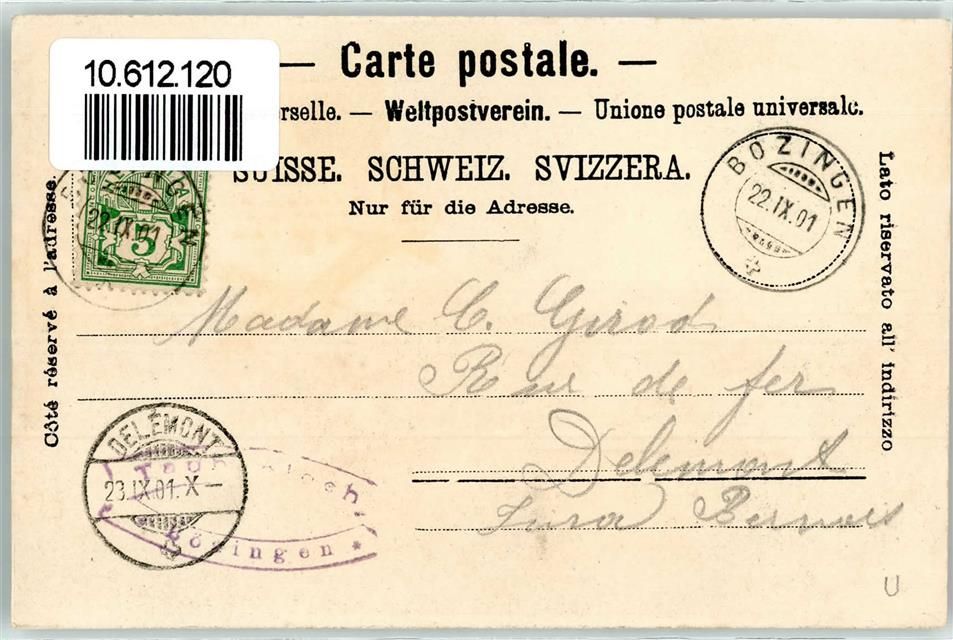 10.612.120
— Carte postale. —
rselle. — Weltpostverein. — Unione postale universale.
SUISSE. SCHWEIZ. SVIZZERA.
Nur für die Adresse.
Côté réservé à l'adresse.
Lato riservato all' indirizzo
22.IX.01
5
BOZINGEN
22.IX.01
Madame C. Girod
Rue de fer
Delemont
Jura Bernois
DELÉMONT
23.IX.01.X—
Bözingen *
U